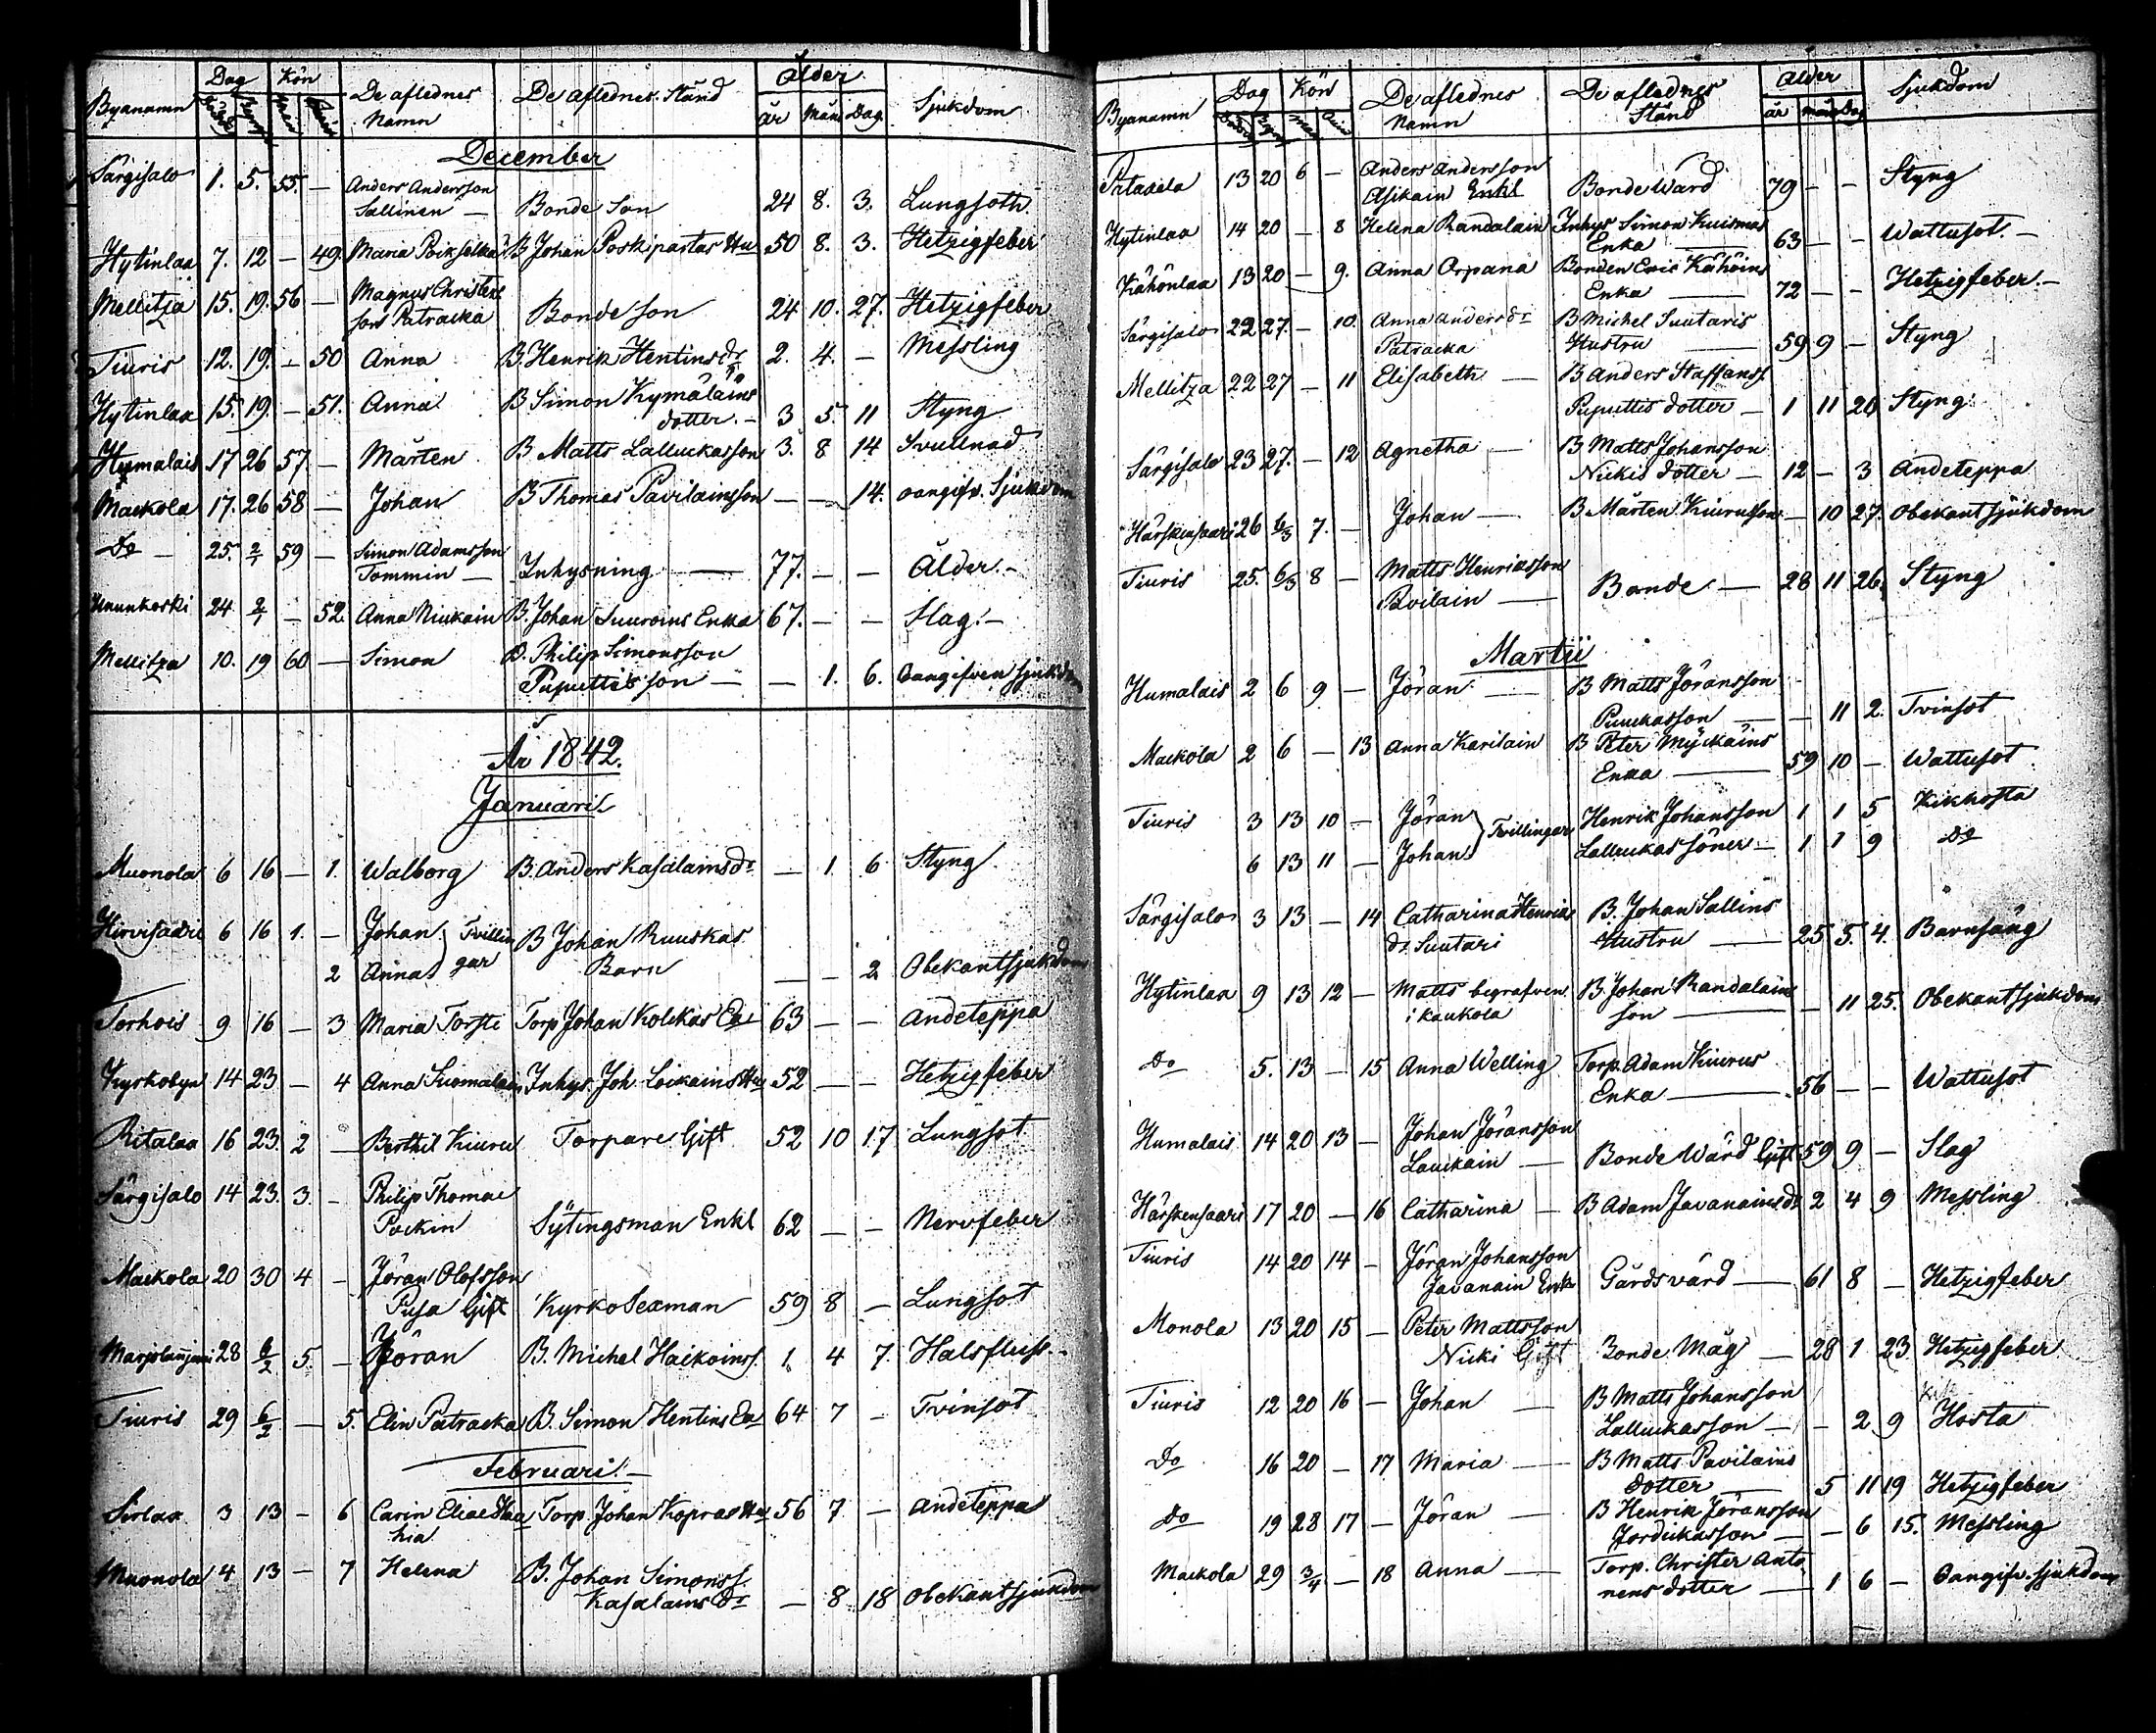 Byanamn Dag Kön De aflednes Namn De aflednes Stånd Ålder Sjukdom
år Mån Dag
December
Särgisalo 1. 5. 55. — Anders Andersson
Sallinen — Bonde Son 24 8. 3. Lungsoth
Hytinlaa 7. 12 — 49. Maria Poikselkä B Johan Poskipartas Hu 50 8. 3. Hetzigfeber
Mellitza 15. 19. 56 — Magnus Christers
son Patracka Bonde son 24 10. 27. Hetzigfeber
Tiuris 12. 19. — 50 Anna B. Henrik Hentinsdr 2. 4. — Messling
Hytinlaa 15. 19. — 51. Anna B Simon Kymäläins
dotter. — 3 5. 11 Styng
Humalais 17 26 57 — Mårten B Matts Lalluckasson 3. 8 14 Svullnad
Mackola 17. 26 58 — Johan B Thomas Pavilainsson — — 14. oangifv. Sjukdom
Do — 25. 2/1 59 — Simon Adamsson
Tommin — Inhysning — 77. — — Ålder. —
Ununkoski 24. 2/1 — 52. Anna Niukain B. Johan Suuroins Enka 67. — — Slag. —
Mellitza 10. 19 60 — Simon B. Philip Simonsson
Puputtis son — — 1. 6. Oangifven sjukdom
År 1842.
Januarii
Muonola 6 16 — 1. Walborg B. Anders Kasalainsdr — 1. 6 Styng
Hirvisaari 6 16 1. — Johan Tvillin B Johan Ruuskas
2 Anna gar Barn — — 2 Obekantsjukdom
Torhois 9 16 — 3 Maria Torsti Torp Johan Kolckas Ea 63 — — Andeteppa
Kyrkobyn 14 23 — 4 Anna Suomalain Inhys. Joh. Loikains Hu 52 — — Hetzigfeber
Ritalaa 16 23. 2 — Berthil Kiuru Torpare Gift 52 10 17 Lungsot
Särgisalo 14 23. 3 — Philip Thomae
Pockin Sytingsman Enkl 62 — — Nervfeber
Mackola 20 30 4 — Jöran Olofsson
Pusa Gift Kyrko Sexman 59 8 — Lungsot
28 6/2 5. — Jöran B. Michel Haikoinss. 1. 4 7. Halsfluss.
Tiuris 29 6/2 — 5. Elin Patracka B. Simon Hentins Ea 64 7 — Tvinsot
Februari. —
Sirlax 3 13 — 6 Carin Eliae Haa
kia Torp. Johan Kopras Hu 56 7 — Andeteppa
Muonola 4 13 — 7 Helena B. Johan Simonss.
Kasalains Dr — 8 18 Obekantsjukdom
Byanamn Dag Kön De aflednes Namn De aflednes Stånd Ålder Sjukdom
år mån Dag
13 20 6 — Anders Andersson
Asikain Enkl Bonde Wärd 79 — — Styng
Hytinlaa 14 20 — 8 Helena Randalain Inhys Simon Kuismas
Enka — 63 — — Wattusot. —
Kähönlaa 13 20 — 9. Anna Orpana Bonden Eric Kähöins
Enka — 72 — — Hetzigfeber. —
Särgisalo 22 27. — 10. Anna Andersdr
Patracka B Michel Suutaris
Hustru — 59 9 — Styng
Mellitza 22 27 — 11 Elisabeth — B Anders Staffanss.
Puputtis dotter — 1 11 20 Styng
Särgisalo 23 27. — 12 Agnetha — B Matts Johansson
Nickis dotter — 12 — 3 Andeteppa
Härskensaari 26 6/3 7. — Johan — B Mårten Kiurusson — 10 27. Obekant sjukdom
Tiuris 25. 6/3 8 — Matts Henricsson
Pavilain — Bonde — 28 11 26. Styng
Martii
Humalais 2 6 9 — Jöran — B Matts Jöransson
Puuckasson — — 11 2. Tvinsot
Mackola 2 6 — 13 Anna Karilain B Peter Myckäins
Enka — 59 10 — Wattusot
Tiuris 3 13 10 — Jöran Tvillingar Henrik Johansson 1 1 5 Kikhosta
6 13 11 — Johan Lalluckas söner — 1 1 9 Do
Särgisalo 3 13 — 14 Catharina Henriks
dr Suutari B. Johan Sallins
Hustru — 25 5. 4. Barnsäng
Hytinlaa 9 13 12 — Matts begrafven
i Kaukola B. Johan Randalains
son — — 11 25. Obekantsjukdom
Do 5. 13 — 15 Anna Welling Torp. Adam Kiurus
Enka — 56 — — Wattusot
Humalais 14 20 13 — Johan Jöransson
Lauckain — Bonde Wärd Gift 59 9 — Slag
Härskensaari 17 20 — 16 Catharina — B Adam Javanainsdr 2 4 9 Messling
Tiuris 14 20 14 — Jöran Johansson
Javanain Enk Gårdsvärd — 61 8 — Hetzigfeber
Monola 13 20 15 — Peter Mattsson
Nicki Gift Bonde Måg — 28 1 23 Hetzigfeber
Tiuris 12 20 16 — Johan — B Matts Johansson
Lalluckasson — — 2 9 Kik Hosta
Do 16 20 — 17 Maria — B Matts Pavilains
dotter — 5 11 19 Hetzigfeber
Do 19 28 17 — Jöran — B Henrik Jöransson
Jordickasson — — 6 15. Messling
Mackola 29 3/4 — 18 Anna — Torp. Christer Anto
nens dotter — 1 6 — Oangifv. sjukdom